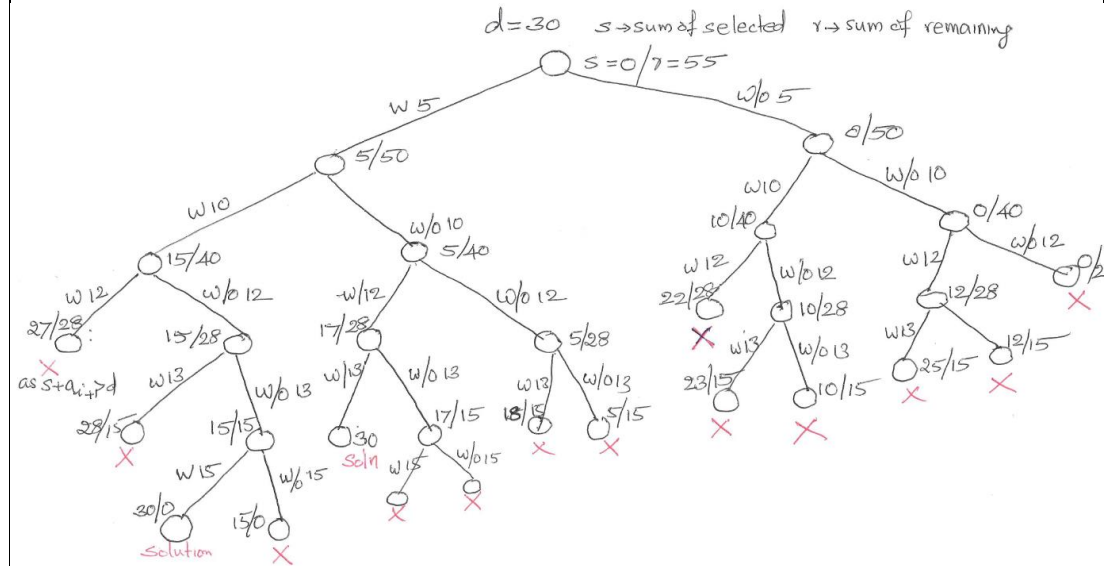 d=30 s→sum of selected r→sum of remaining
s=0/r=55
w5
w/o 5
5/50
0/50
w10
w/o 10
w10
w/o 10
15/40
5/40
10/40
0/40
w12
w/o 12
w/12
w/o 12
w12
w/o12
w12
w/o12
27/28
15/28
17/28
5/28
22/28
10/28
12/28
X
as s+ai+1>d
w13
w/o 13
w/13
w/o 13
w13
w/o13
w13
w/o 13
w13
X
X
28/15
15/15
30
17/15
18/15
5/15
23/15
10/15
25/15
12/15
X
Soln
X
X
X
X
X
X
w15
w/o 15
w15
w/o15
30/0
15/0
X
X
Solution
X